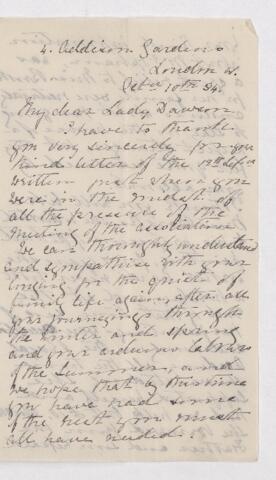 4. Addison Gardens
London W.
Oct 10th 84.
My dear Lady Dawson
I have to thank
you very sincerely for your
kind letter of the 12th Sep
written just when you
were in the midst of
all the pressure of the
meeting of the association
We can thoroughly understand
and sympathise with your
longing for the quiet of
family life again, after all
your journeyings through
the winter and spring
and your arduous labours
of the summer, and
we hope that by this time
you have had some
of the rest you must
all have needed.